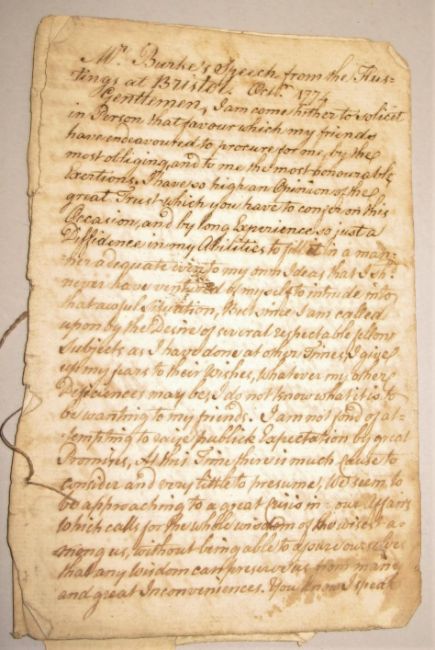 Mr. Burke's Speech from the Hus-
tings at Bristol. Octr. 1774
Gentlemen, I am come hither to solicit
in Person, that favour which my friends
have endeavoured to procure for me, by the
most obliging, and to me the most honourable
Exertions, I have so high an Opinion of the
great Trust which you have to confer on this
Occasion, and by long Experience so just a
Diffidence in my Abilities to fill it in a man-
ner adequate even to my own Ideas, that I shd.
never have ventured by myself to intrude into
that awful Situation, But since I am called
upon by the Desire of several respectable fellow
Subjects as I have done at other Times, I give
up my fears to their Wishes, whatever my other
Deficiences may be, I do not know what it is to
be wanting to my friends. I am not fond of at-
tempting to raise publick Expectation by great
Promises, At this Time there is much cause to
consider and very little to presume, We seem to
be approaching to a great Crisis in your Affairs
which calls for the whole wisdom of the wisest a-
mong us, without being able to assure ourselves
that any Wisdom can preserve us from many
and great Inconveniences. You know I speak